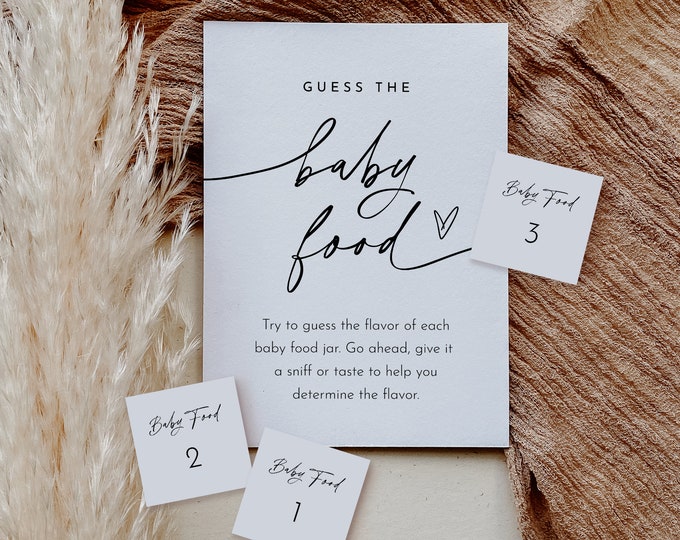 GUESS THE
baby
food
Try to guess the flavor of each
baby food jar. Go ahead, give it
a sniff or taste to help you
determine the flavor.
Baby Food
3
Baby Food
2
Baby Food
1